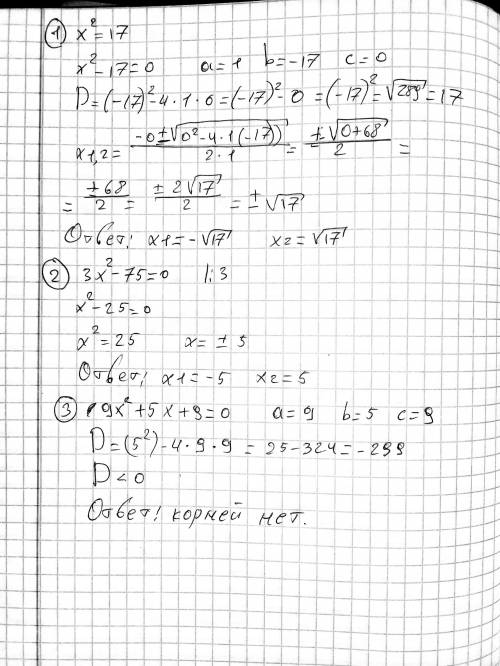 ① x² = 17
x² - 17 = 0 a = 1 b = -17 c = 0
D = (-17)² - 4 · 1 · 0 = (-17)² - 0 = (-17)² = √289 = 17
x1,2 = (-0 ± √(0² - 4 · 1 (-17))) / (2 · 1) = ±√(0+68) / 2 =
= ±68 / 2 = ±2√17 / 2 = ±√17
Ответ: x1 = -√17 x2 = √17
② 3x² - 75 = 0 |:3
x² - 25 = 0
x² = 25 x = ± 5
Ответ: x1 = -5 x2 = 5
③ 9x² + 5x + 9 = 0 a = 9 b = 5 c = 9
D = (5²) - 4 · 9 · 9 = 25 - 324 = -299
D < 0
Ответ: корней нет.